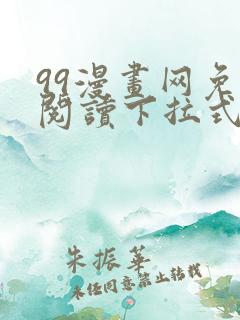 99漫畫网免
閱讀下拉式
朱振華
未任同意禁止转载